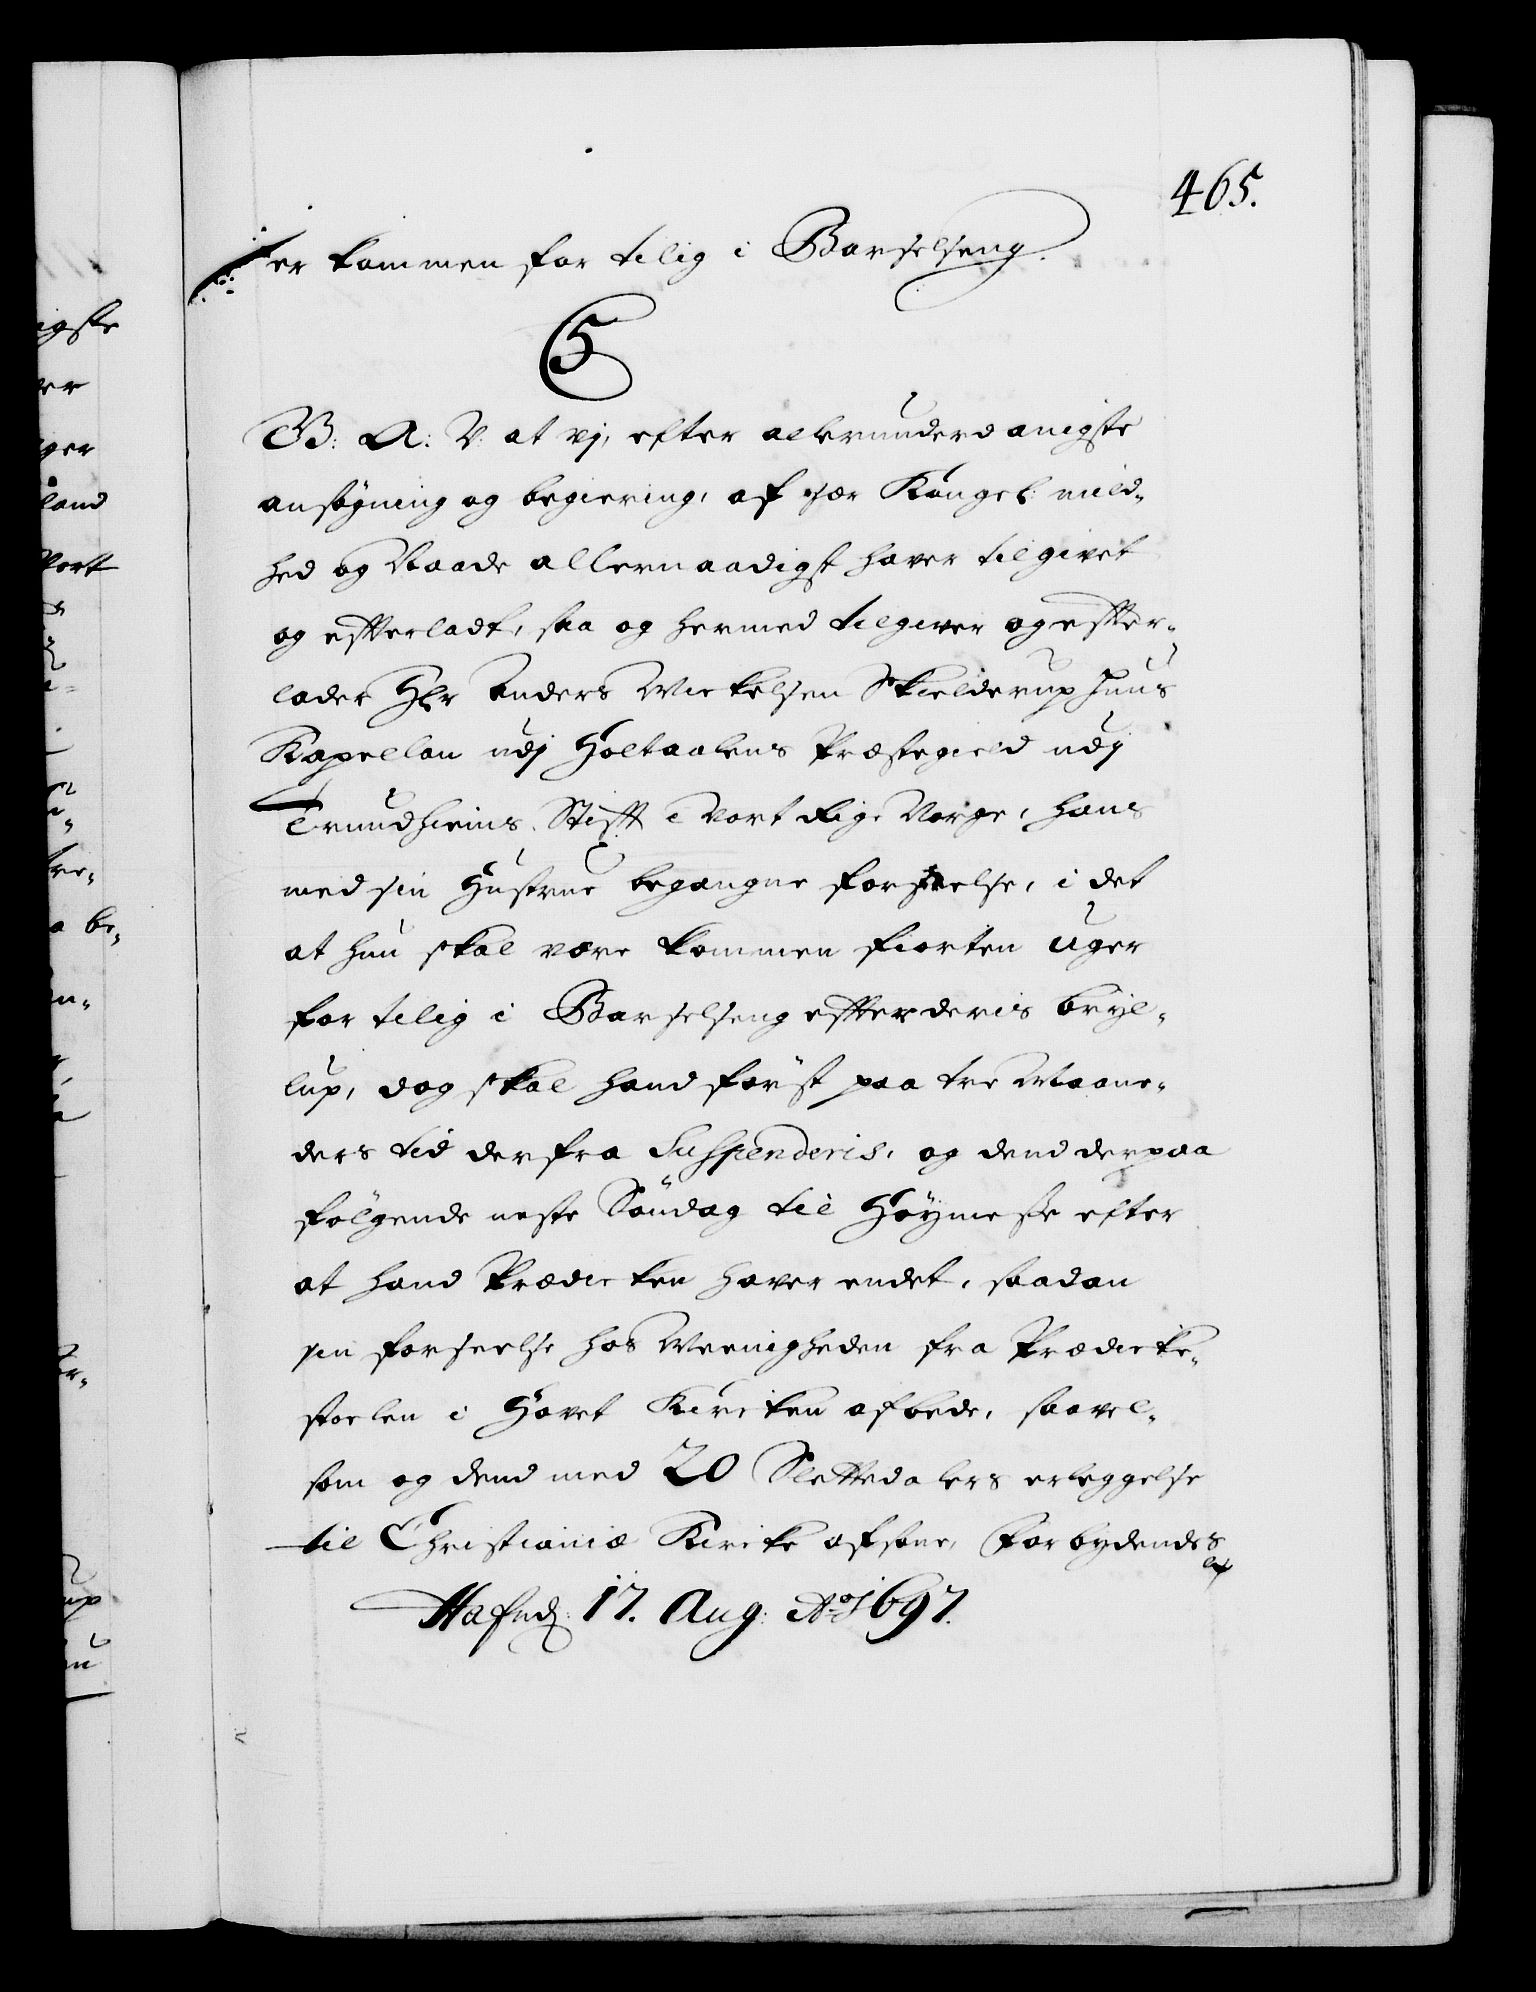 465.
er kommen for tilig i Barselseng.
5
G: A: V: at vj, efter allerunderdanigste
ansøgning og begiering, af sær Kongel: mild-
hed og Naade allernaadigst haver tilgivet
og effterladt, saa og hermed tilgiver og effter-
lader Hr Anders Mickelsen Skielderup huus
Kapellan udj Holtaalens Præstegield udj
Trundhiems Stifft i vort Rige Norge, hans
med sin Hustrue begangne forseelse, i det
at hun skal være kommen fiorten Uger
for tilig i Barselseng effter deris bryl-
lup, dog skal hand først paa tre Maane-
ders tid derfra Suspenderis, og dend derpaa
følgende neste Søndag til Høymesse efter
at hand Prædicken haver endet, saadan
sin forseelse hos Meenigheden fra Prædicke-
stoelen i Hovet Kircken afbede, saavel-
som og dend med 20 Slettedalers erleggelse
til Christianiæ Kircke afsone, Forbydendes
Hafnd: 17. Aug: Ao 1697.